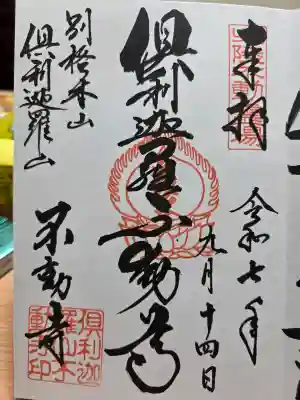 奉拝
令和七年
九月十四日
倶利迦羅不動尊
別格本山
倶利迦羅山
不動寺
倶利迦
羅山不
動寺印